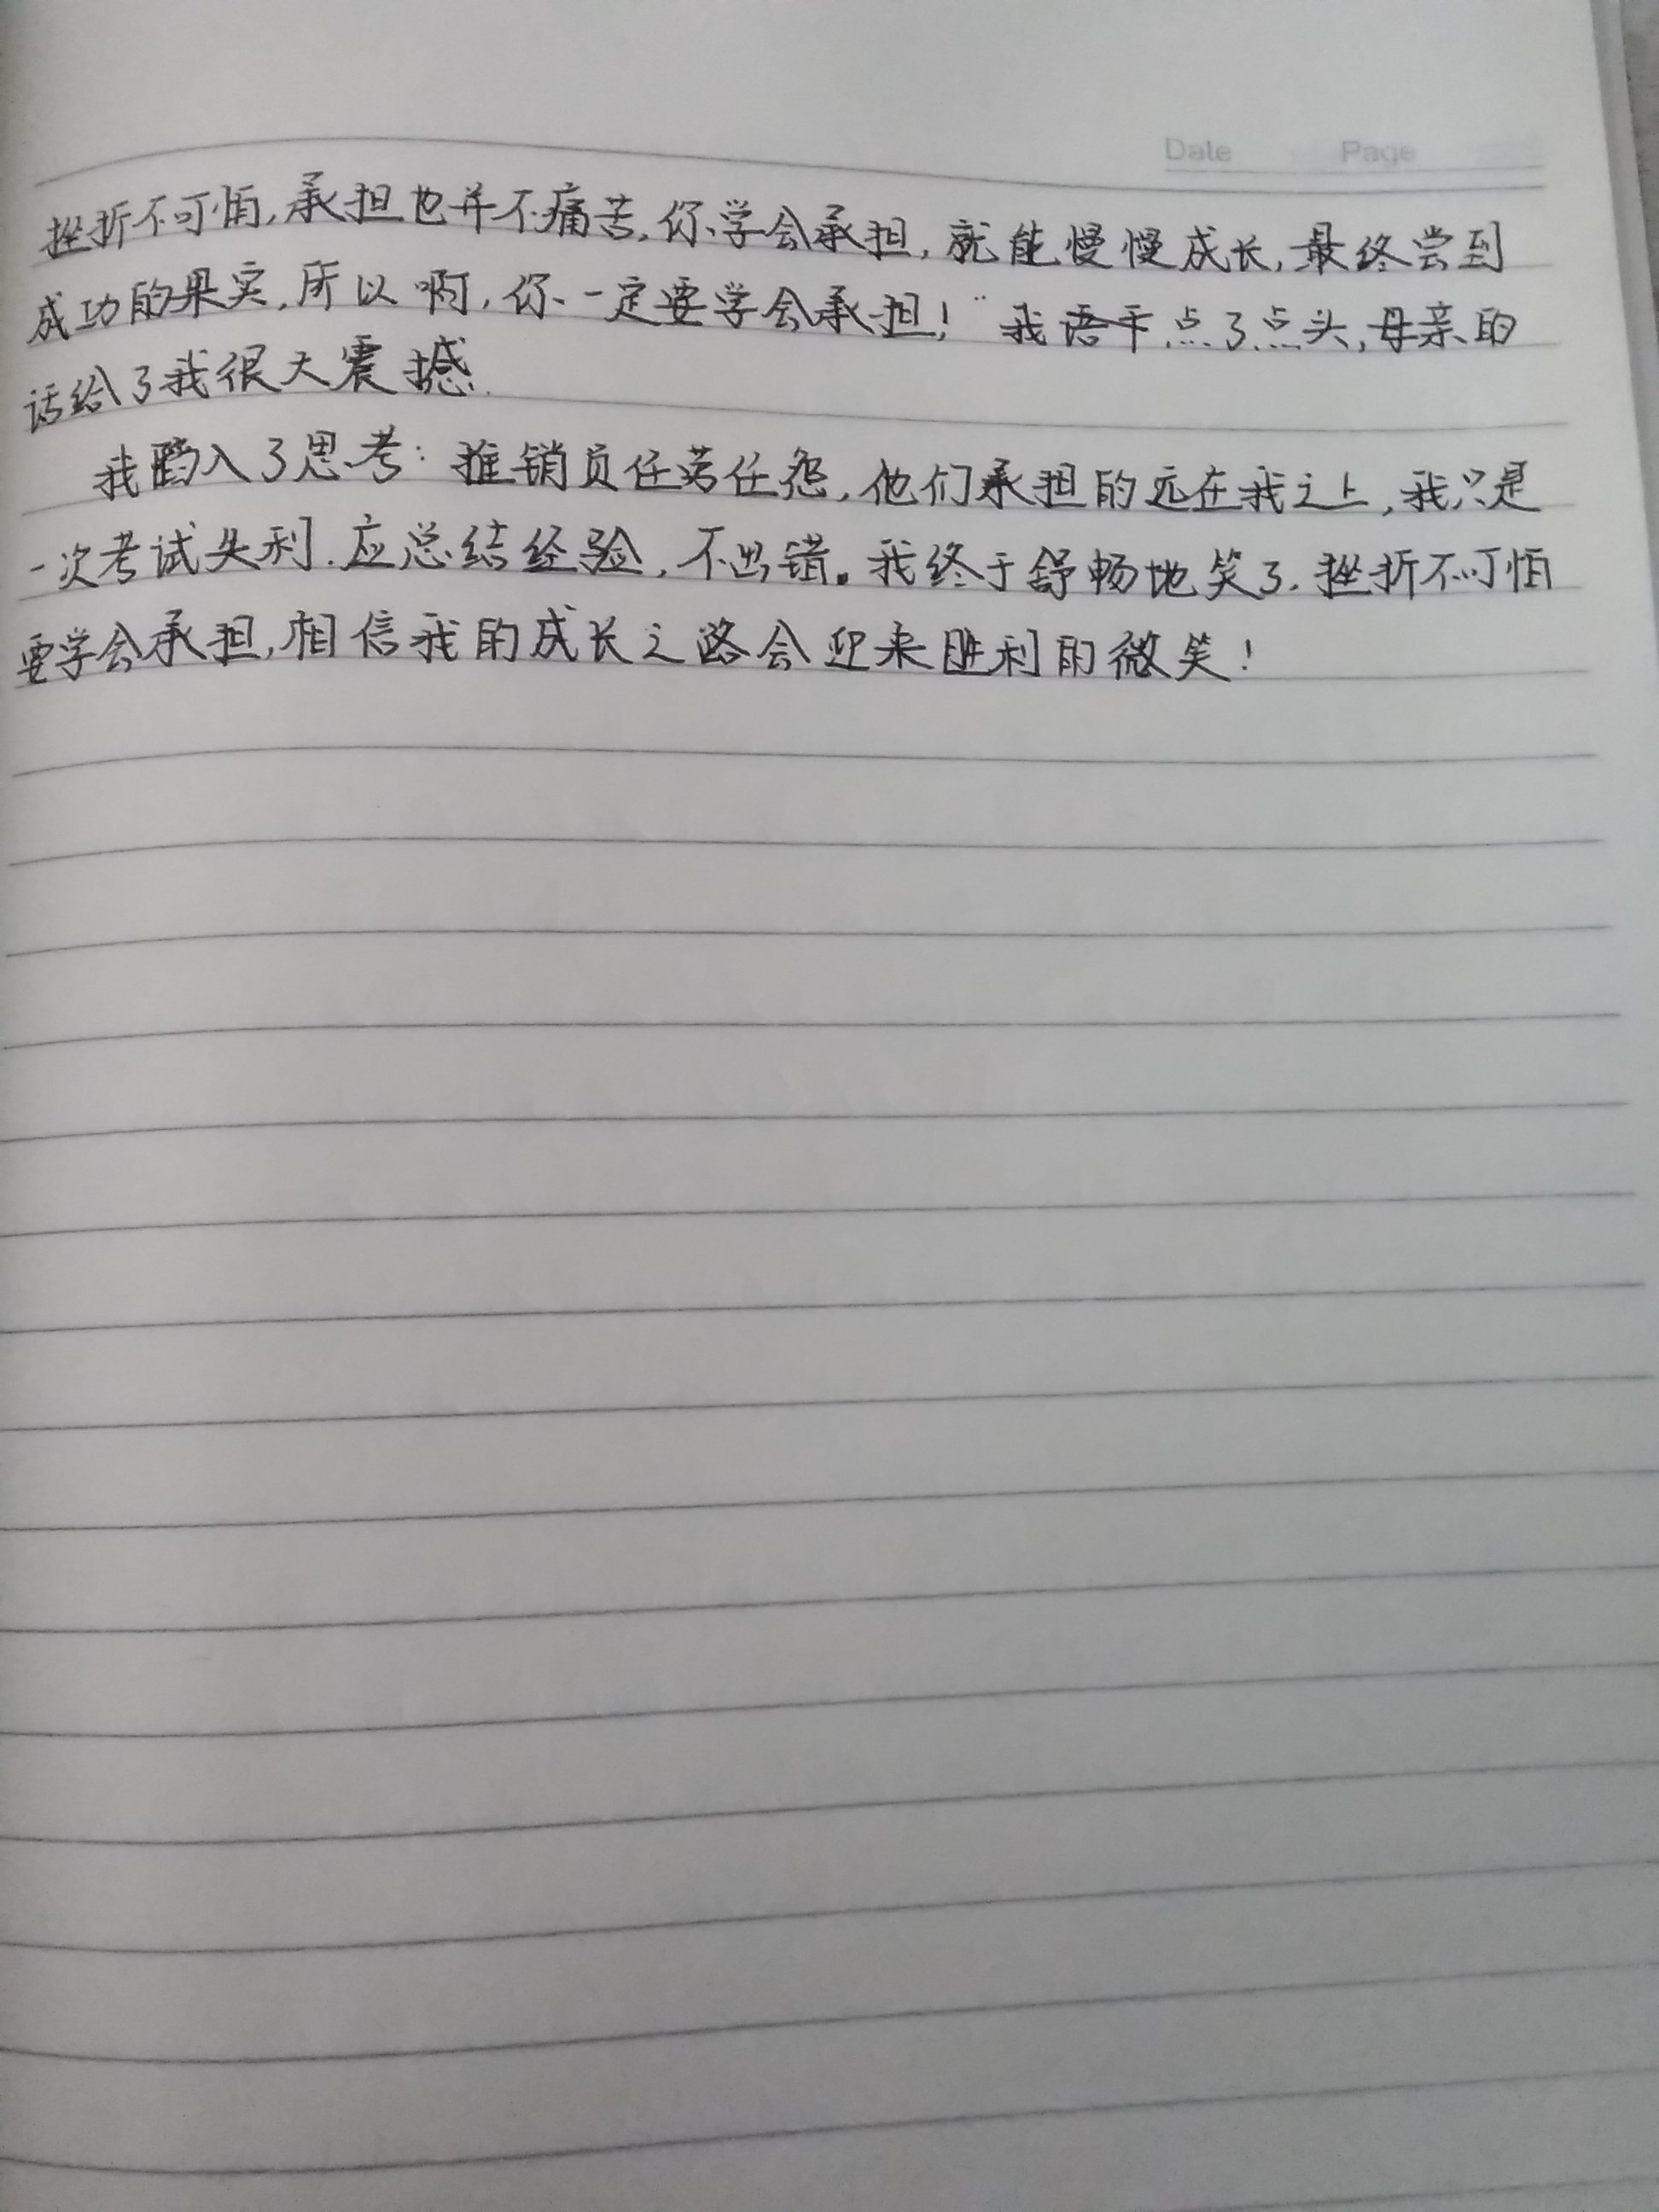 Date Page
挫折不可怕,承担也并不痛苦,你学会承担,就能慢慢成长,最终尝到
成功的果实,所以啊,你一定要学会承担!”我点了点头,母亲的
话给了我很大震撼.
我陷入了思考:推销员任劳任怨,他们承担的远在我之上,我只是
一次考试失利.应总结经验,不出错。我终于舒畅地笑了.挫折不可怕
要学会承担,相信我的成长之路会迎来胜利的微笑!